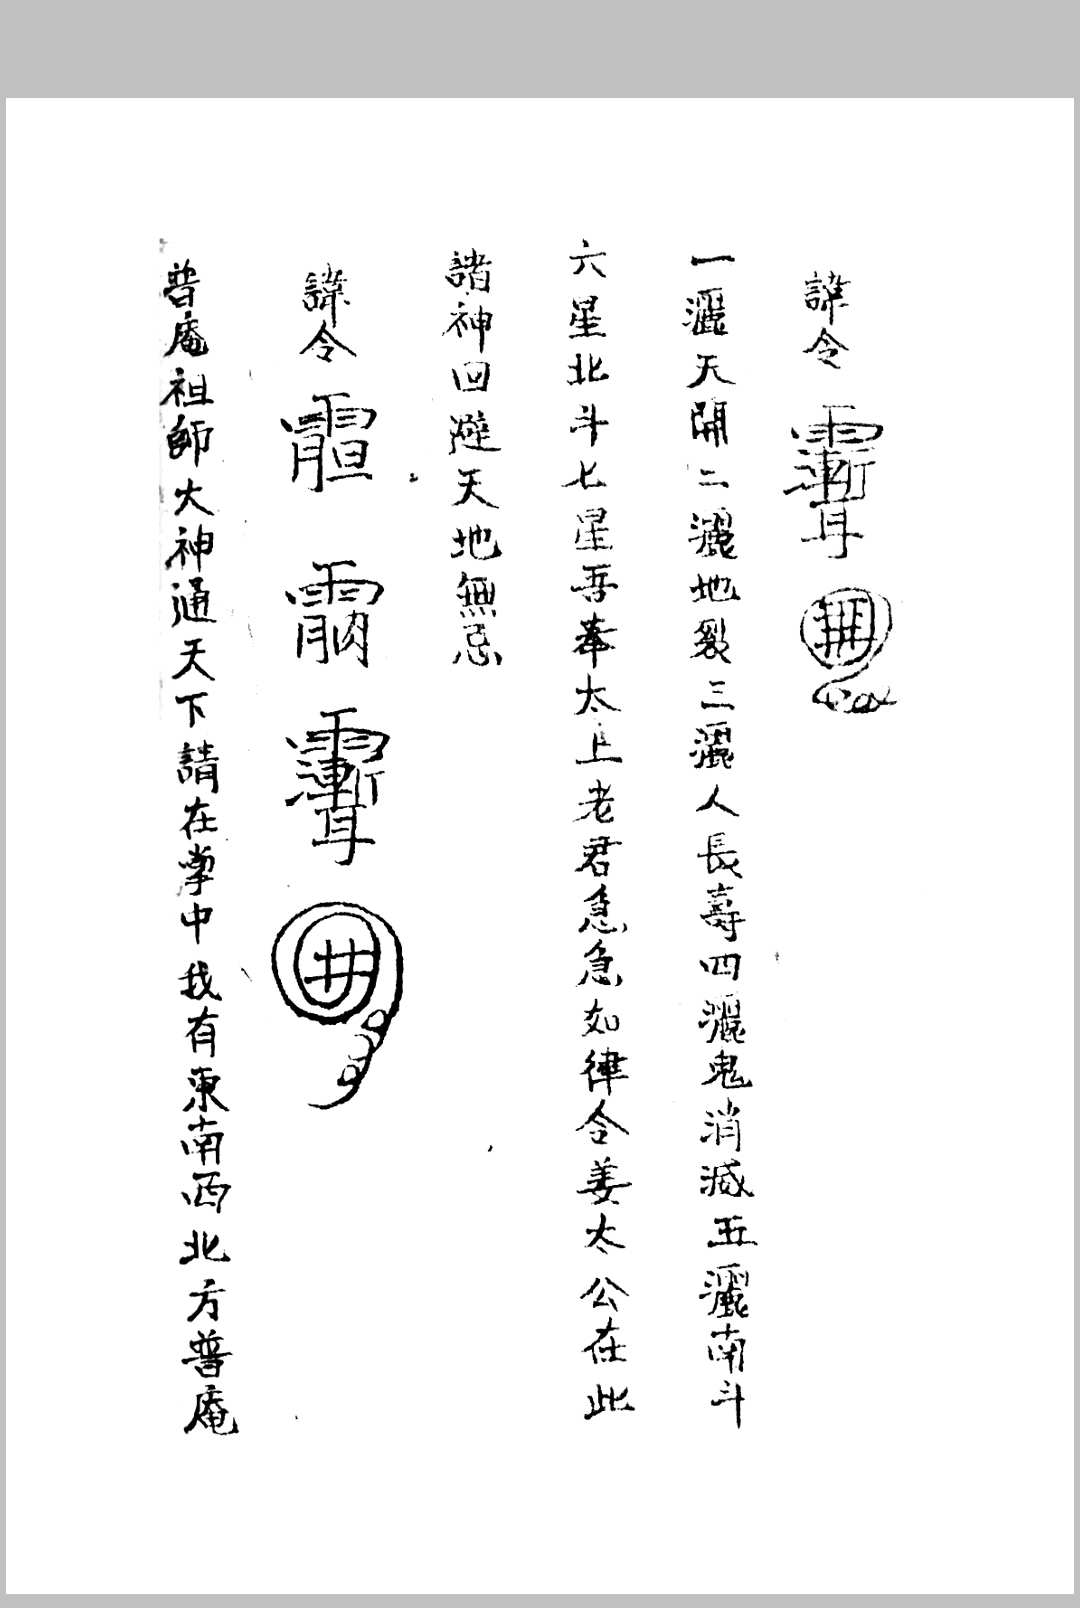 諱令䨲
一灑天開二灑地裂三灑人長壽四灑鬼消滅五灑南斗
六星北斗七星吾奉太上老君急急如律令姜太公在此
諸神回避天地無忌
諱令
普庵祖師大神通天下請在掌中我有東南西北方普庵